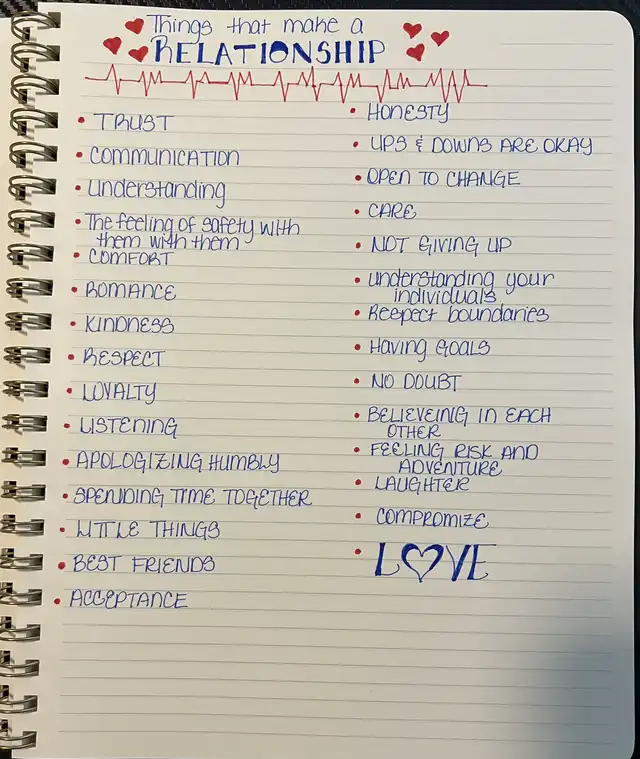 Things that make a
RELATIONSHIP
• TRUST
• COMMUNICATION
• Understanding
• The feeling of safety with
them with them
• COMFORT
• ROMANCE
• KINDNESS
• RESPECT
• LOYALTY
• LISTENING
• APOLOGIZING HUMBLY
• SPENDING TIME TOGETHER
• LITTLE THINGS
• BEST FRIENDS
• ACCEPTANCE
• HONESTY
• UPS & DOWNS ARE OKAY
• OPEN TO CHANGE
• CARE
• NOT GIVING UP
• understanding your
individuals
• Respect boundaries
• Having GOALS
• NO DOUBT
• BELIEVEING IN EACH
OTHER
• FEELING RISK AND
ADVENTURE
• LAUGHTER
• COMPROMIZE
• LOVE